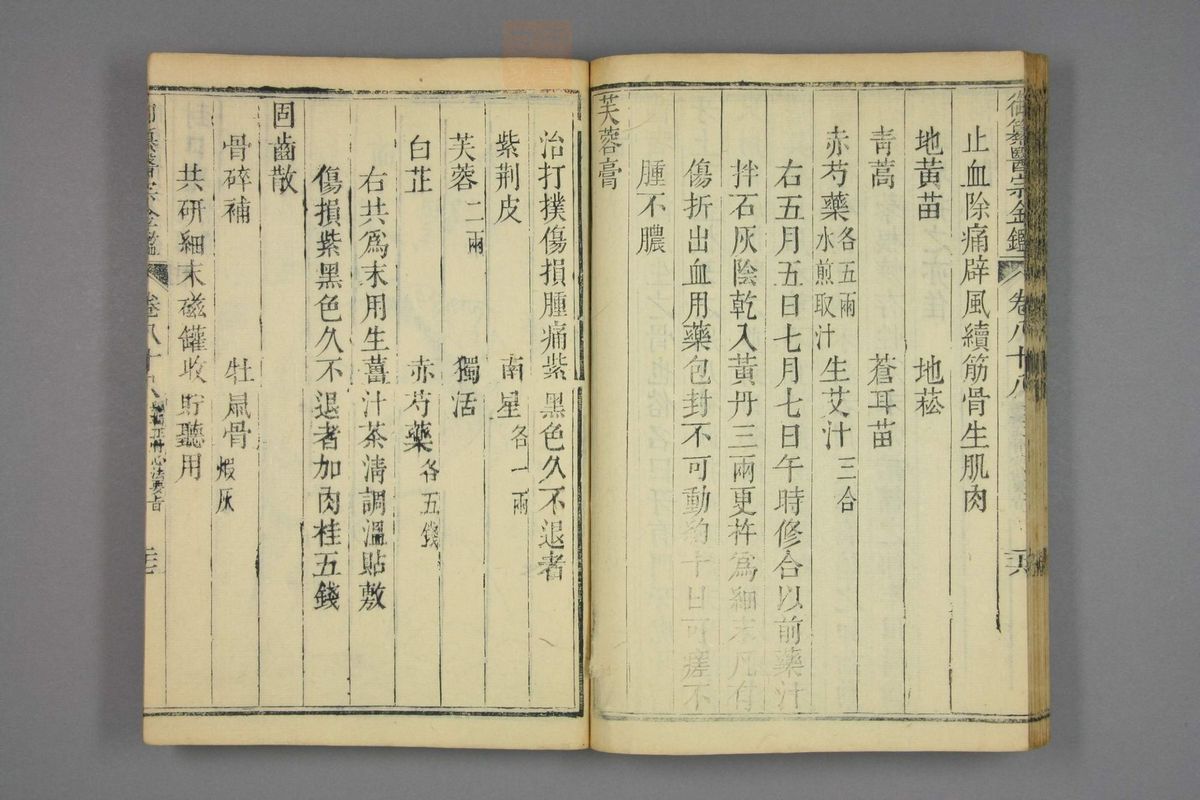 御纂醫宗金鑑 卷八十八 二六
止血除痛辟風續筋骨生肌肉
地黃苗 地菘
青蒿 蒼耳苗
赤芍藥各五兩水煎取汁 生艾汁三合
右五月五日七月七日午時修合以前藥汁
拌石灰陰乾入黃丹三兩更杵為細末凡有
傷折出血用藥包封不可動約十日可瘥不
腫不膿
芙蓉膏
治打撲傷損腫痛紫黑色久不退者
紫荆皮 南星各一兩
芙蓉二兩 獨活
白芷 赤芍藥各五錢
右共爲末用生薑汁茶淸調溫貼敷
傷損紫黑色久不退者加肉桂五錢
固齒散
骨碎補 牡鼠骨煆灰
共研細末磁罐收貯聽用
纂醫宗金鑑 卷八十八 正骨心法要旨 二七